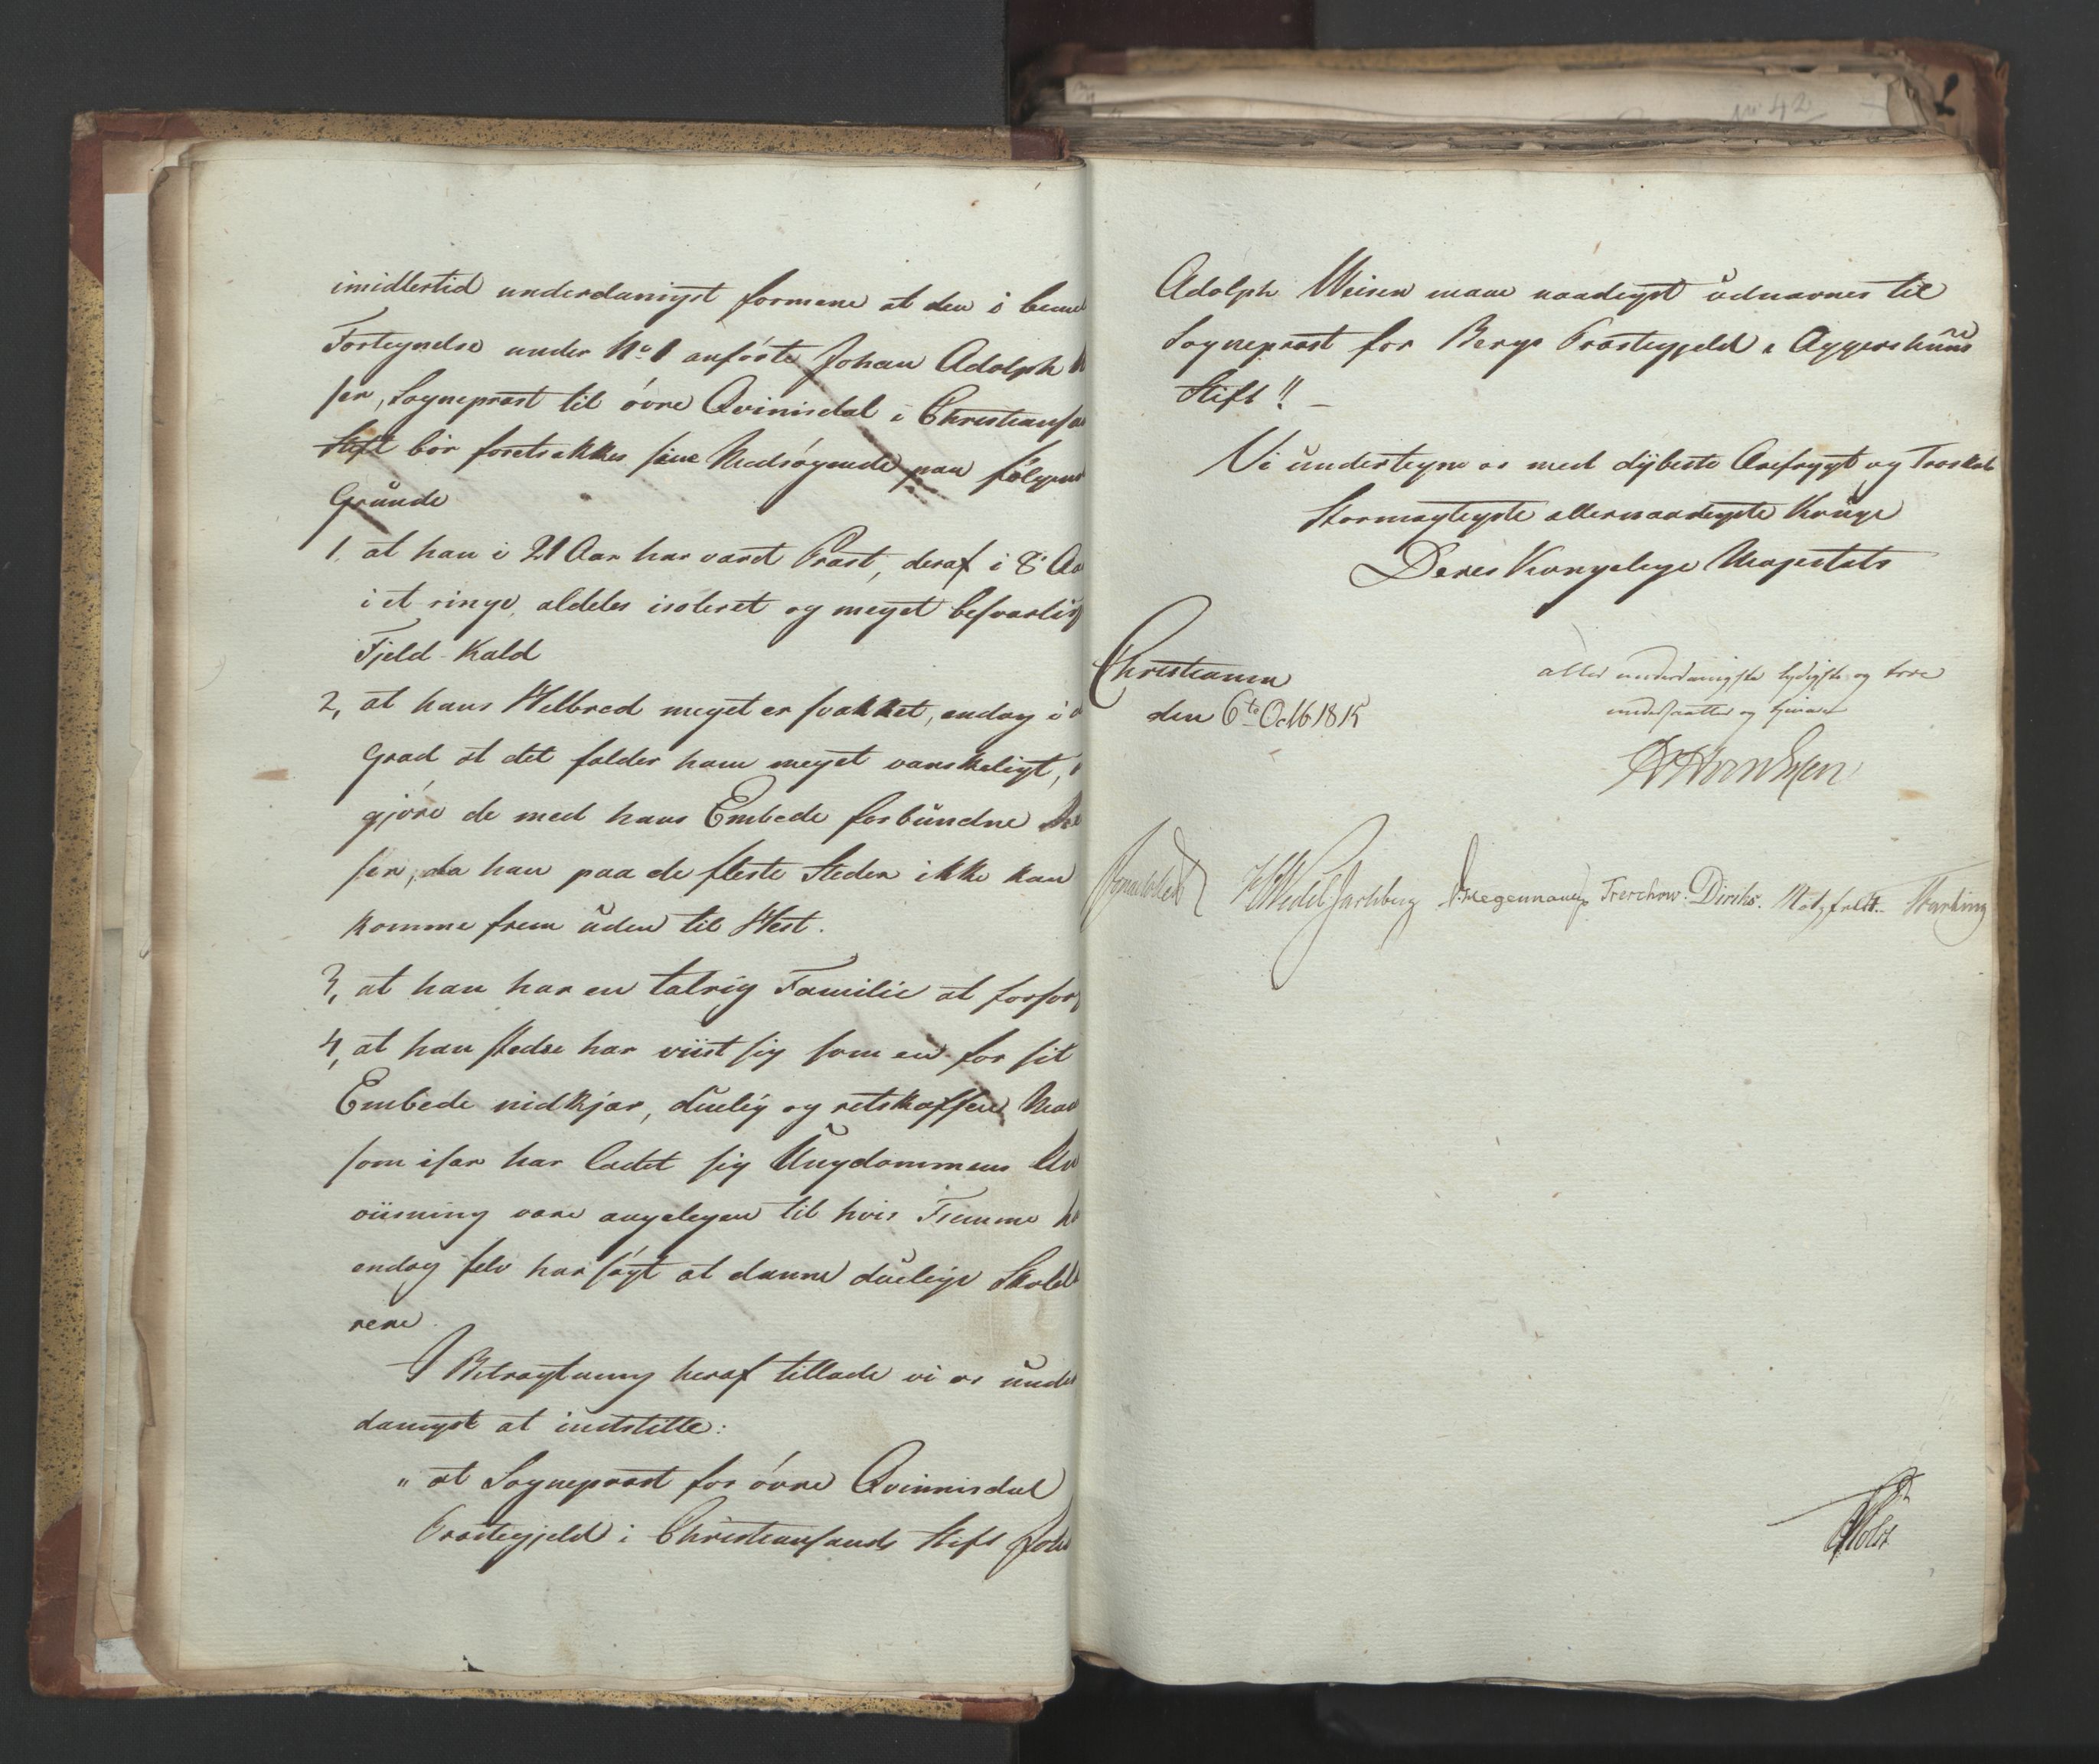 imidlertid underdanigst formene at den i bemel
Fortegnelse under No 1 anförte Johan Adolph
sen, Sognepræst til övre Qvinisdal i Christiansa
Stift bör foretrækkes sine Medsögende paa fölgend
Grunde
1. at han i 21 Aar har været Præst, deraf i 8 Aa
i et ringe, aldeles isoleret og meget besværlig
Fjeld-Kald
2, at hans Helbred meget er svækket, endog i
Grad at det falder ham meget vanskeligt,
gjöre de med hans Embede forbundne
ser, da han paa de fleste Steder ikke kan
komme frem uden til Hest.
3, at han har en talrig Familie at forsör
4, at han stedse har viist sig som en for sit
Embede nidkjær, duelig og retskaffen Man
som især har ladet sig Ungdommens Un
viisning være angelegen til hvis Fremme ha
endog selv har sögt at danne duelige Skolel
rere.
I Betragtning heraf tillade vi os under
danigst at indstille:
" at Sognepræst for övre Qvinnisdal
Præstegjeld i Christiansands Stift Joh
No 42
Adolph Meisen maae naadigst udnævnes til
Sognepræst for Bergs Præstegjeld i Aggershuus
Stift !! _
Vi undertegne os med dybeste Ærefrygt og Troskab
Stormægtigste allernaadigste Konge
Deres Kongelige Majestæts
Christiania
den 6te Octb 1815
aller underdanigste lydigste og troe
undersaatter og tjenere
H Wedel Jarlsberg Hegermann Treschow. Diriks. Motzfeldt.
Holst